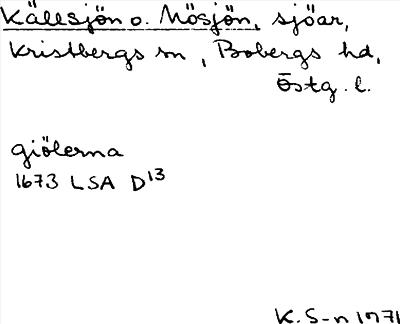 Källsjön o. Mösjön, sjöar,
Kristbergs sn, Bobergs hd,
Östg. l.
giölerna
1673 LSA D13
K. S-n 1971